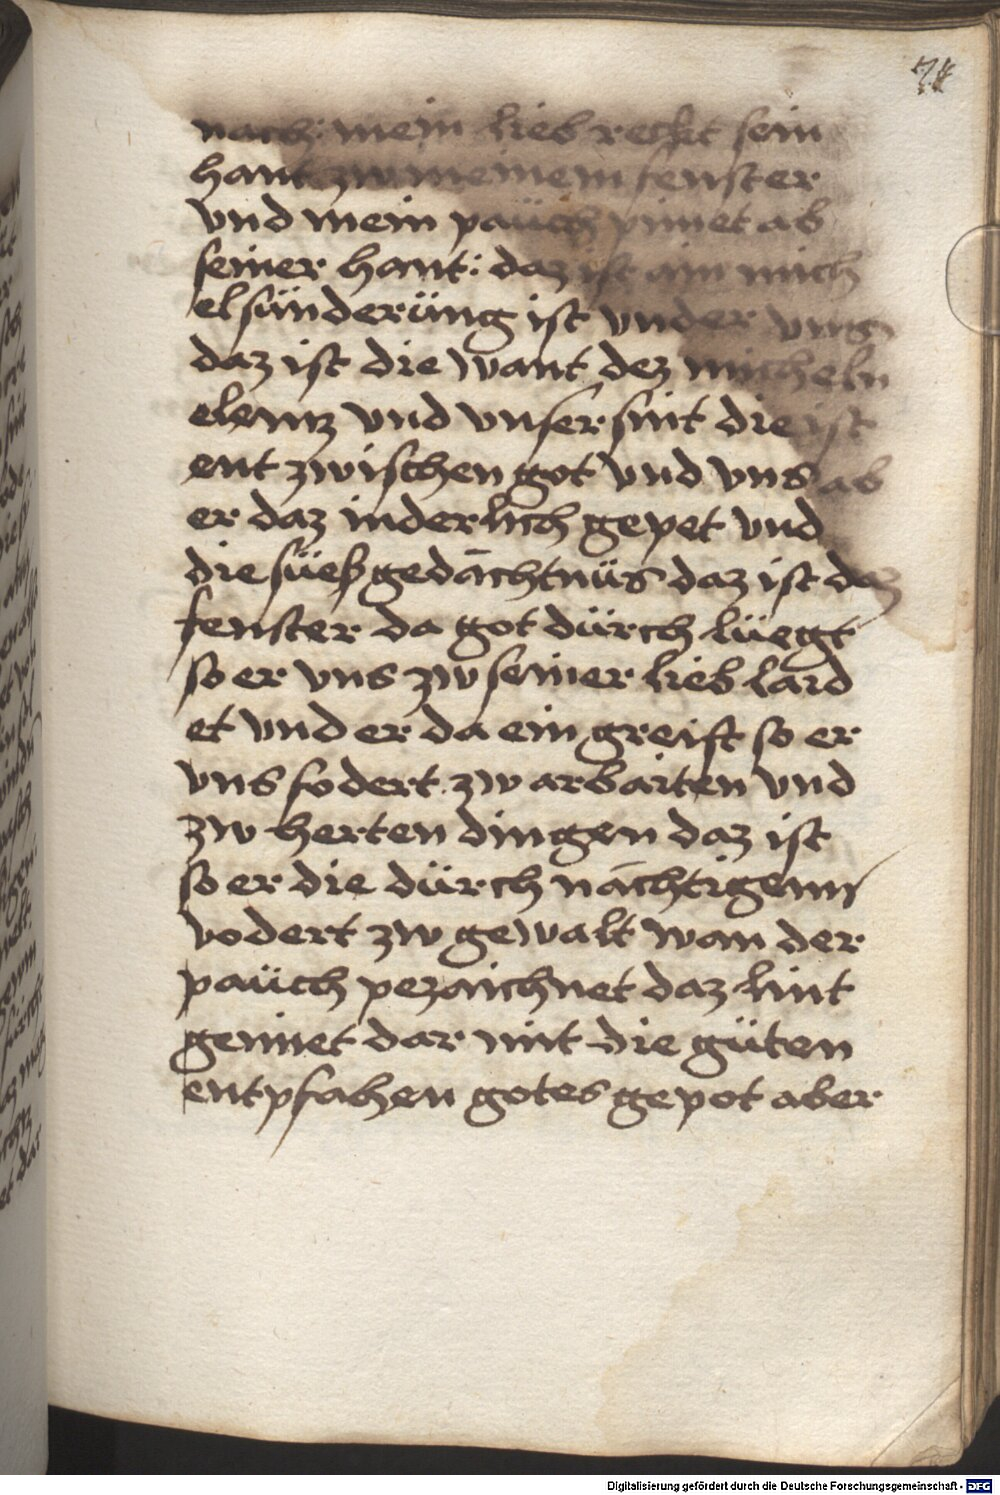 74
nach: mein lieb reckt sein
hant zw meinem fenster
vnd mein paüch pimet ab
seiner hant: daz ist ain mich
elsünderüng ist vnder vnns
daz ist die want dez micheln
elentz vnd vnser sint die ist
ent zwischen got vnd vns ab
er daz inderlich gepet vnd
die süeß gedächtnüs daz ist daz
fenster da got dürch lüegt
so er vns zw seiner lieb lard
et vnd er da ein greift so er
vns fodert zw arbaiten vnd
zw herten dingen daz ist
so er die dürch nächtigenn
vodert zw gewalt wan der
paüch pezaichnet daz lint
gemüet dar mit die güten
entpfahen gotes gepot aber
Digitalisierung gefördert durch die Deutsche Forschungsgemeinschaft - DFG